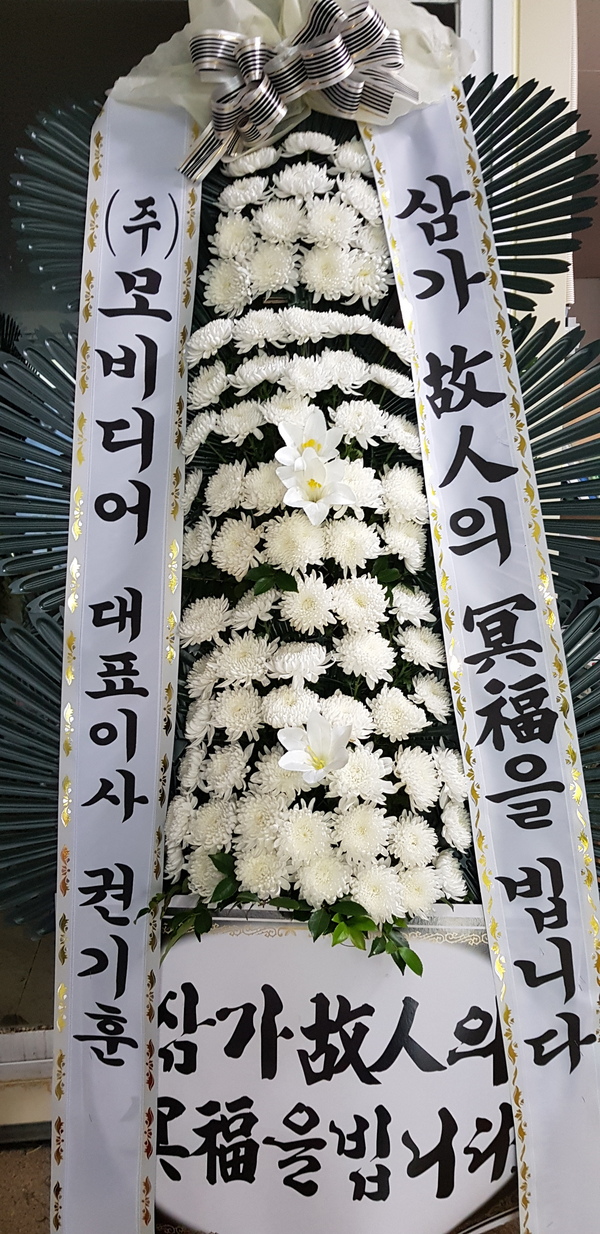 (주)모비디어 대표이사 권기훈
삼가 故人의 冥福을 빕니다
삼가故人의
冥福을빕니다